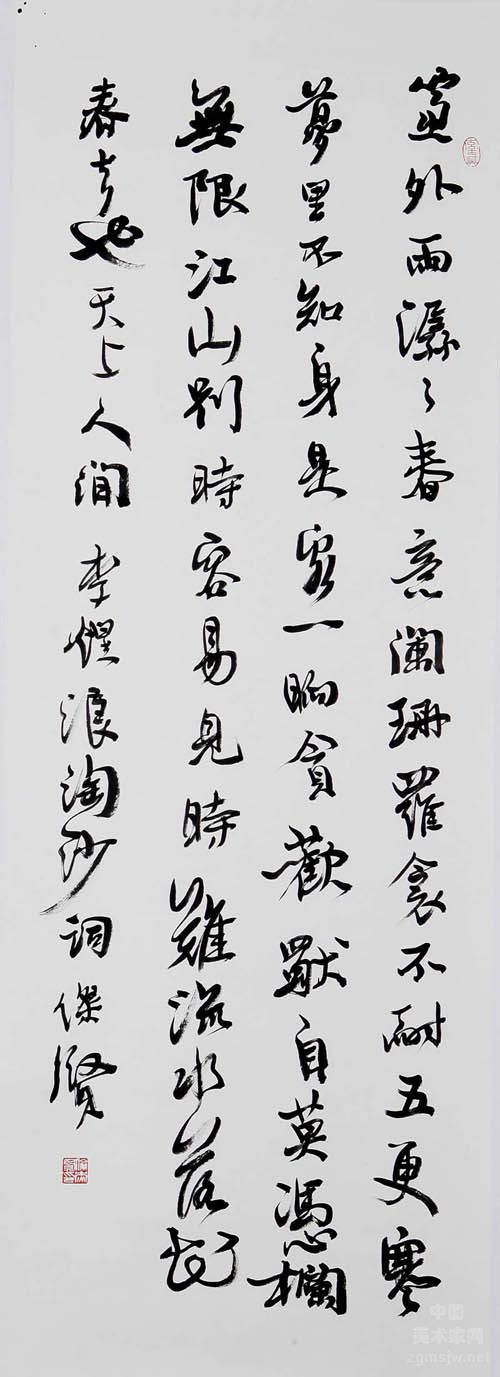 窗外雨潺々春意瀾珊羅衾不耐五更寒
夢里不知身是客一晌貪歡獸自莫憑欄
無限江山別時容易見時難流水落花
春去也天上人間 李煜浪淘沙詞 傑賢
中国
美术家网
zgmsjw.net